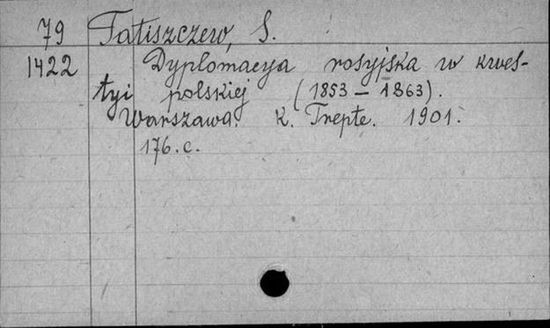 79 Tatiszczew, S.
1422 Dyplomacya rosyjska w kwes-
tyi polskiej (1853 – 1863).
Warszawa. K. Trepte. 1901.
176. c.